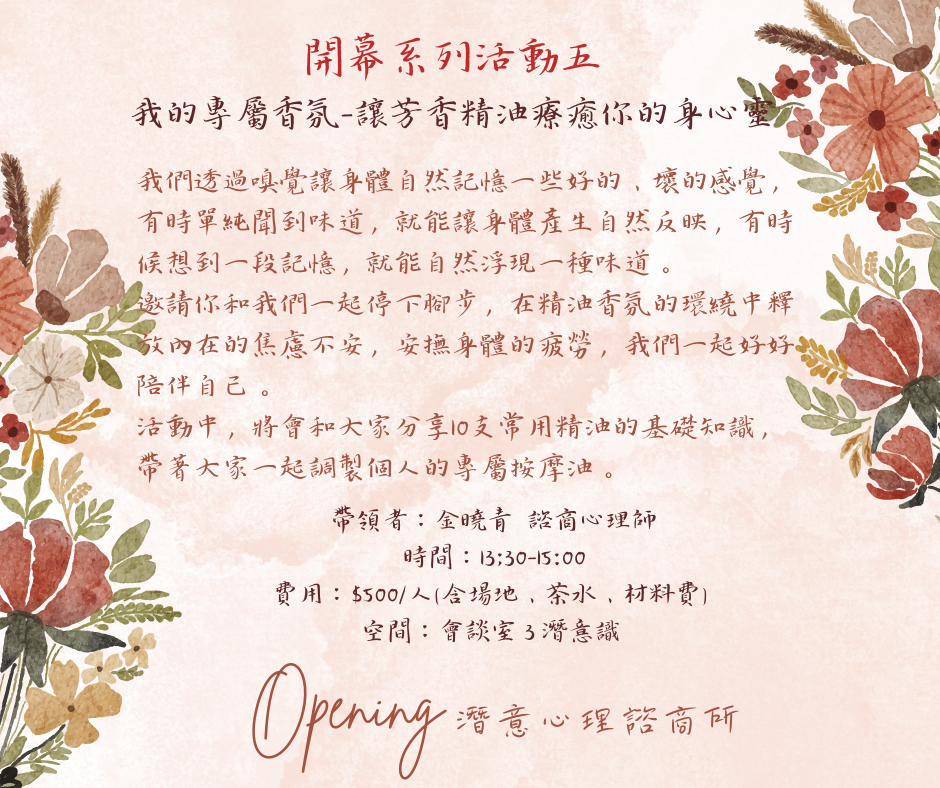 開幕系列活動五
我的專屬香氛-讓芳香精油療癒你的身心靈
我們透過嗅覺讓身體自然記憶一些好的、壞的感覺，
有時單純聞到味道，就能讓身體產生自然反映，有時
候想到一段記憶，就能自然浮現一種味道。
邀請你和我們一起停下腳步，在精油香氛的環繞中釋
放內在的焦慮不安，安撫身體的疲勞，我們一起好好
陪伴自己。
活動中，將會和大家分享10支常用精油的基礎知識，
帶著大家一起調製個人的專屬按摩油。
帶領者：金曉青 諮商心理師
時間：13;30-15:00
費用：$500/人(含場地、茶水、材料費)
空間：會談室3潛意識
Opening 潛意心理諮商所